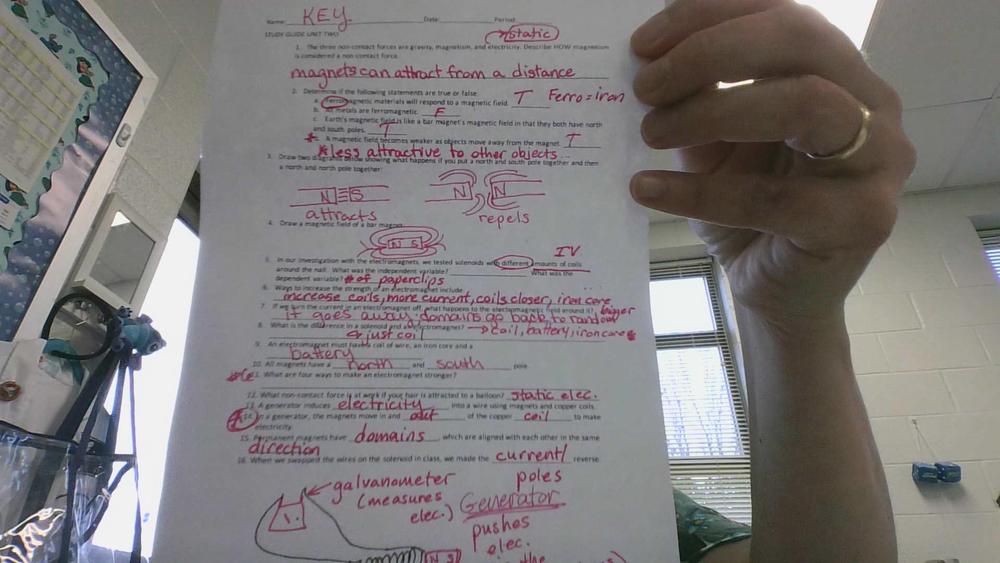 Name: KEY Date: Period:
STUDY GUIDE UNIT TWO
static
1. The three non-contact forces are gravity, magnetism, and electricity. Describe HOW magnetism
is considered a non-contact force.
magnets can attract from a distance
2. Determine if the following statements are true or false:
a. Ferromagnetic materials will respond to a magnetic field. T Ferro = iron
b. All metals are ferromagnetic. F
c. Earth's magnetic field is like a bar magnet's magnetic field in that they both have north
and south poles. T
A magnetic field becomes weaker as objects move away from the magnet. T
*less attractive to other objects...
3. Draw two diagrams below showing what happens if you put a north and south pole together and then
a north and north pole together:
N S N N
attracts repels
4. Draw a magnetic field of a bar magnet
N S
IV
5. In our investigation with the electromagnets, we tested solenoids with different amounts of coils
around the nail. What was the independent variable? What was the
dependent variable? # of paperclips
6. Ways to increase the strength of an electromagnet include:
increase coils, more current, coils closer, iron core
7. If we turn the current in an electromagnet off, what happens to the electromagnetic field around it? bigger
it goes away, domains go back to random
8. What is the difference in a solenoid and an electromagnet? → coil, battery, iron core
↳ just coil
9. An electromagnet must have a coil of wire, an iron core and a
battery
10. All magnets have a north and south pole.
11. What are four ways to make an electromagnet stronger?
12. What non-contact force is at work if your hair is attracted to a balloon? static elec.
13. A generator induces electricity into a wire using magnets and copper coils.
14. In a generator, the magnets move in and out of the copper coil to make
electricity.
15. Permanent magnets have domains, which are aligned with each other in the same
direction
16. When we swapped the wires on the solenoid in class, we made the current/ reverse.
poles
galvanometer
(measures
elec.)
Generator
pushes
elec.
N S
the